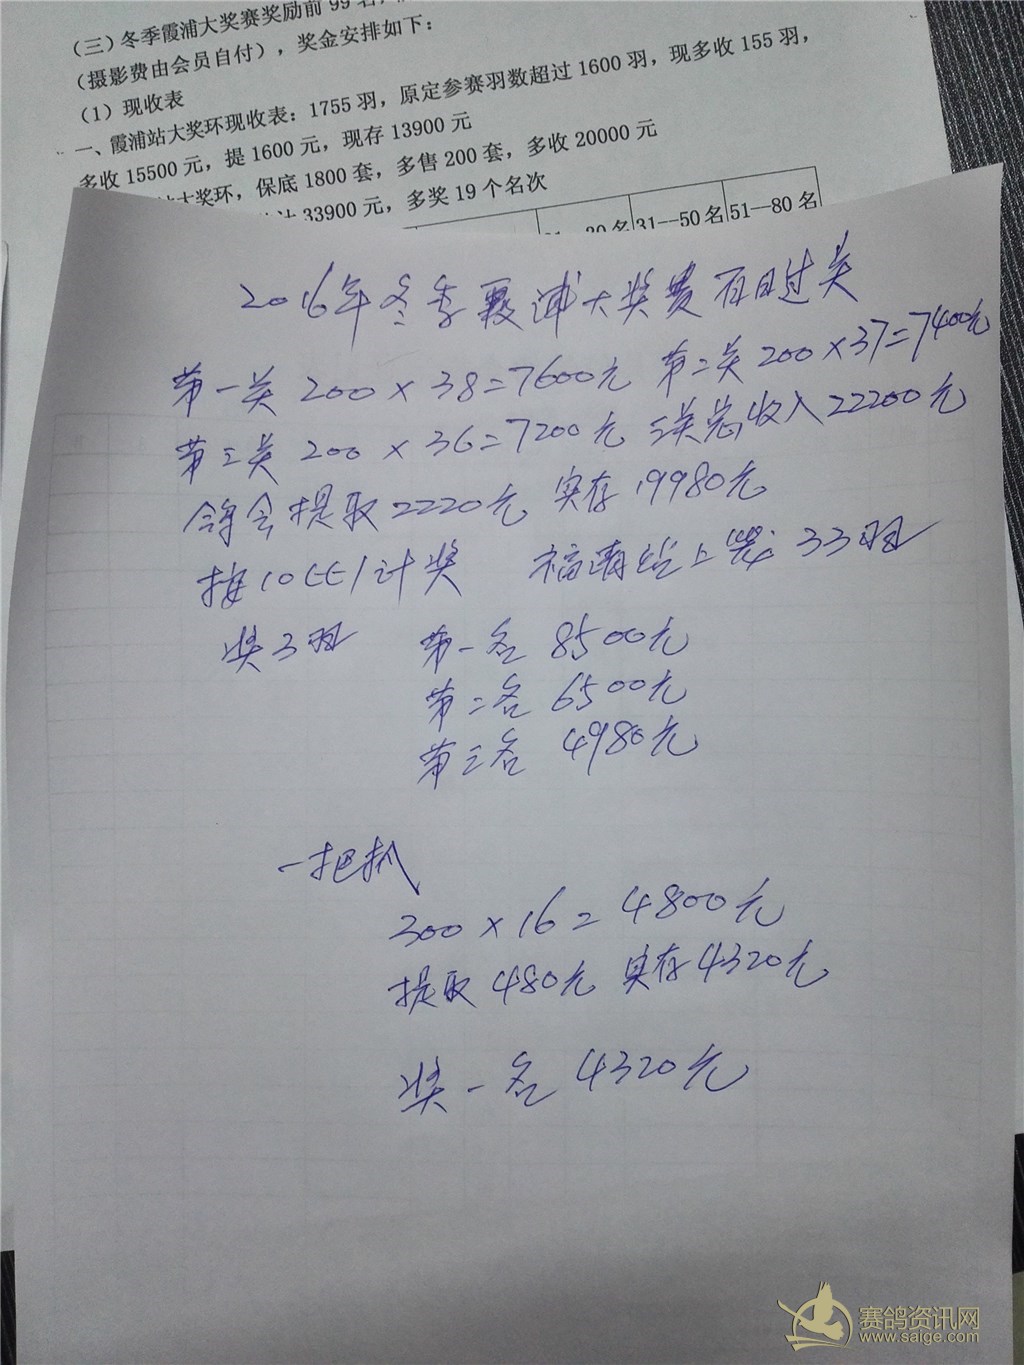 （三）冬季霞浦大奖赛奖励前99名，
（摄影费由会员自付），奖金安排如下：
（1）现收表
一、霞浦站大奖环现收表：1755羽，原定参赛羽数超过1600羽，现多收155羽，
多收15500元，提1600元，现存13900元
大奖环，保底1800套，多售200套，多收20000元
计33900元，多奖19个名次
30名 31--50名 51--80名
2016年冬季霞浦大奖赛百日过关
第一关 200×38=7600元 第二关 200×37=7400元
第三关 200×36=7200元 三关总收入22200元
鸽会提取2220元 实存19980元
按10比1计奖 福清站上笼 33羽
奖3羽 第一名 8500元
第二名 6500元
第三名 4980元
一把抓
300×16=4800元
提取480元 实存4320元
奖一名 4320元
赛鸽资讯网
www.saige.com